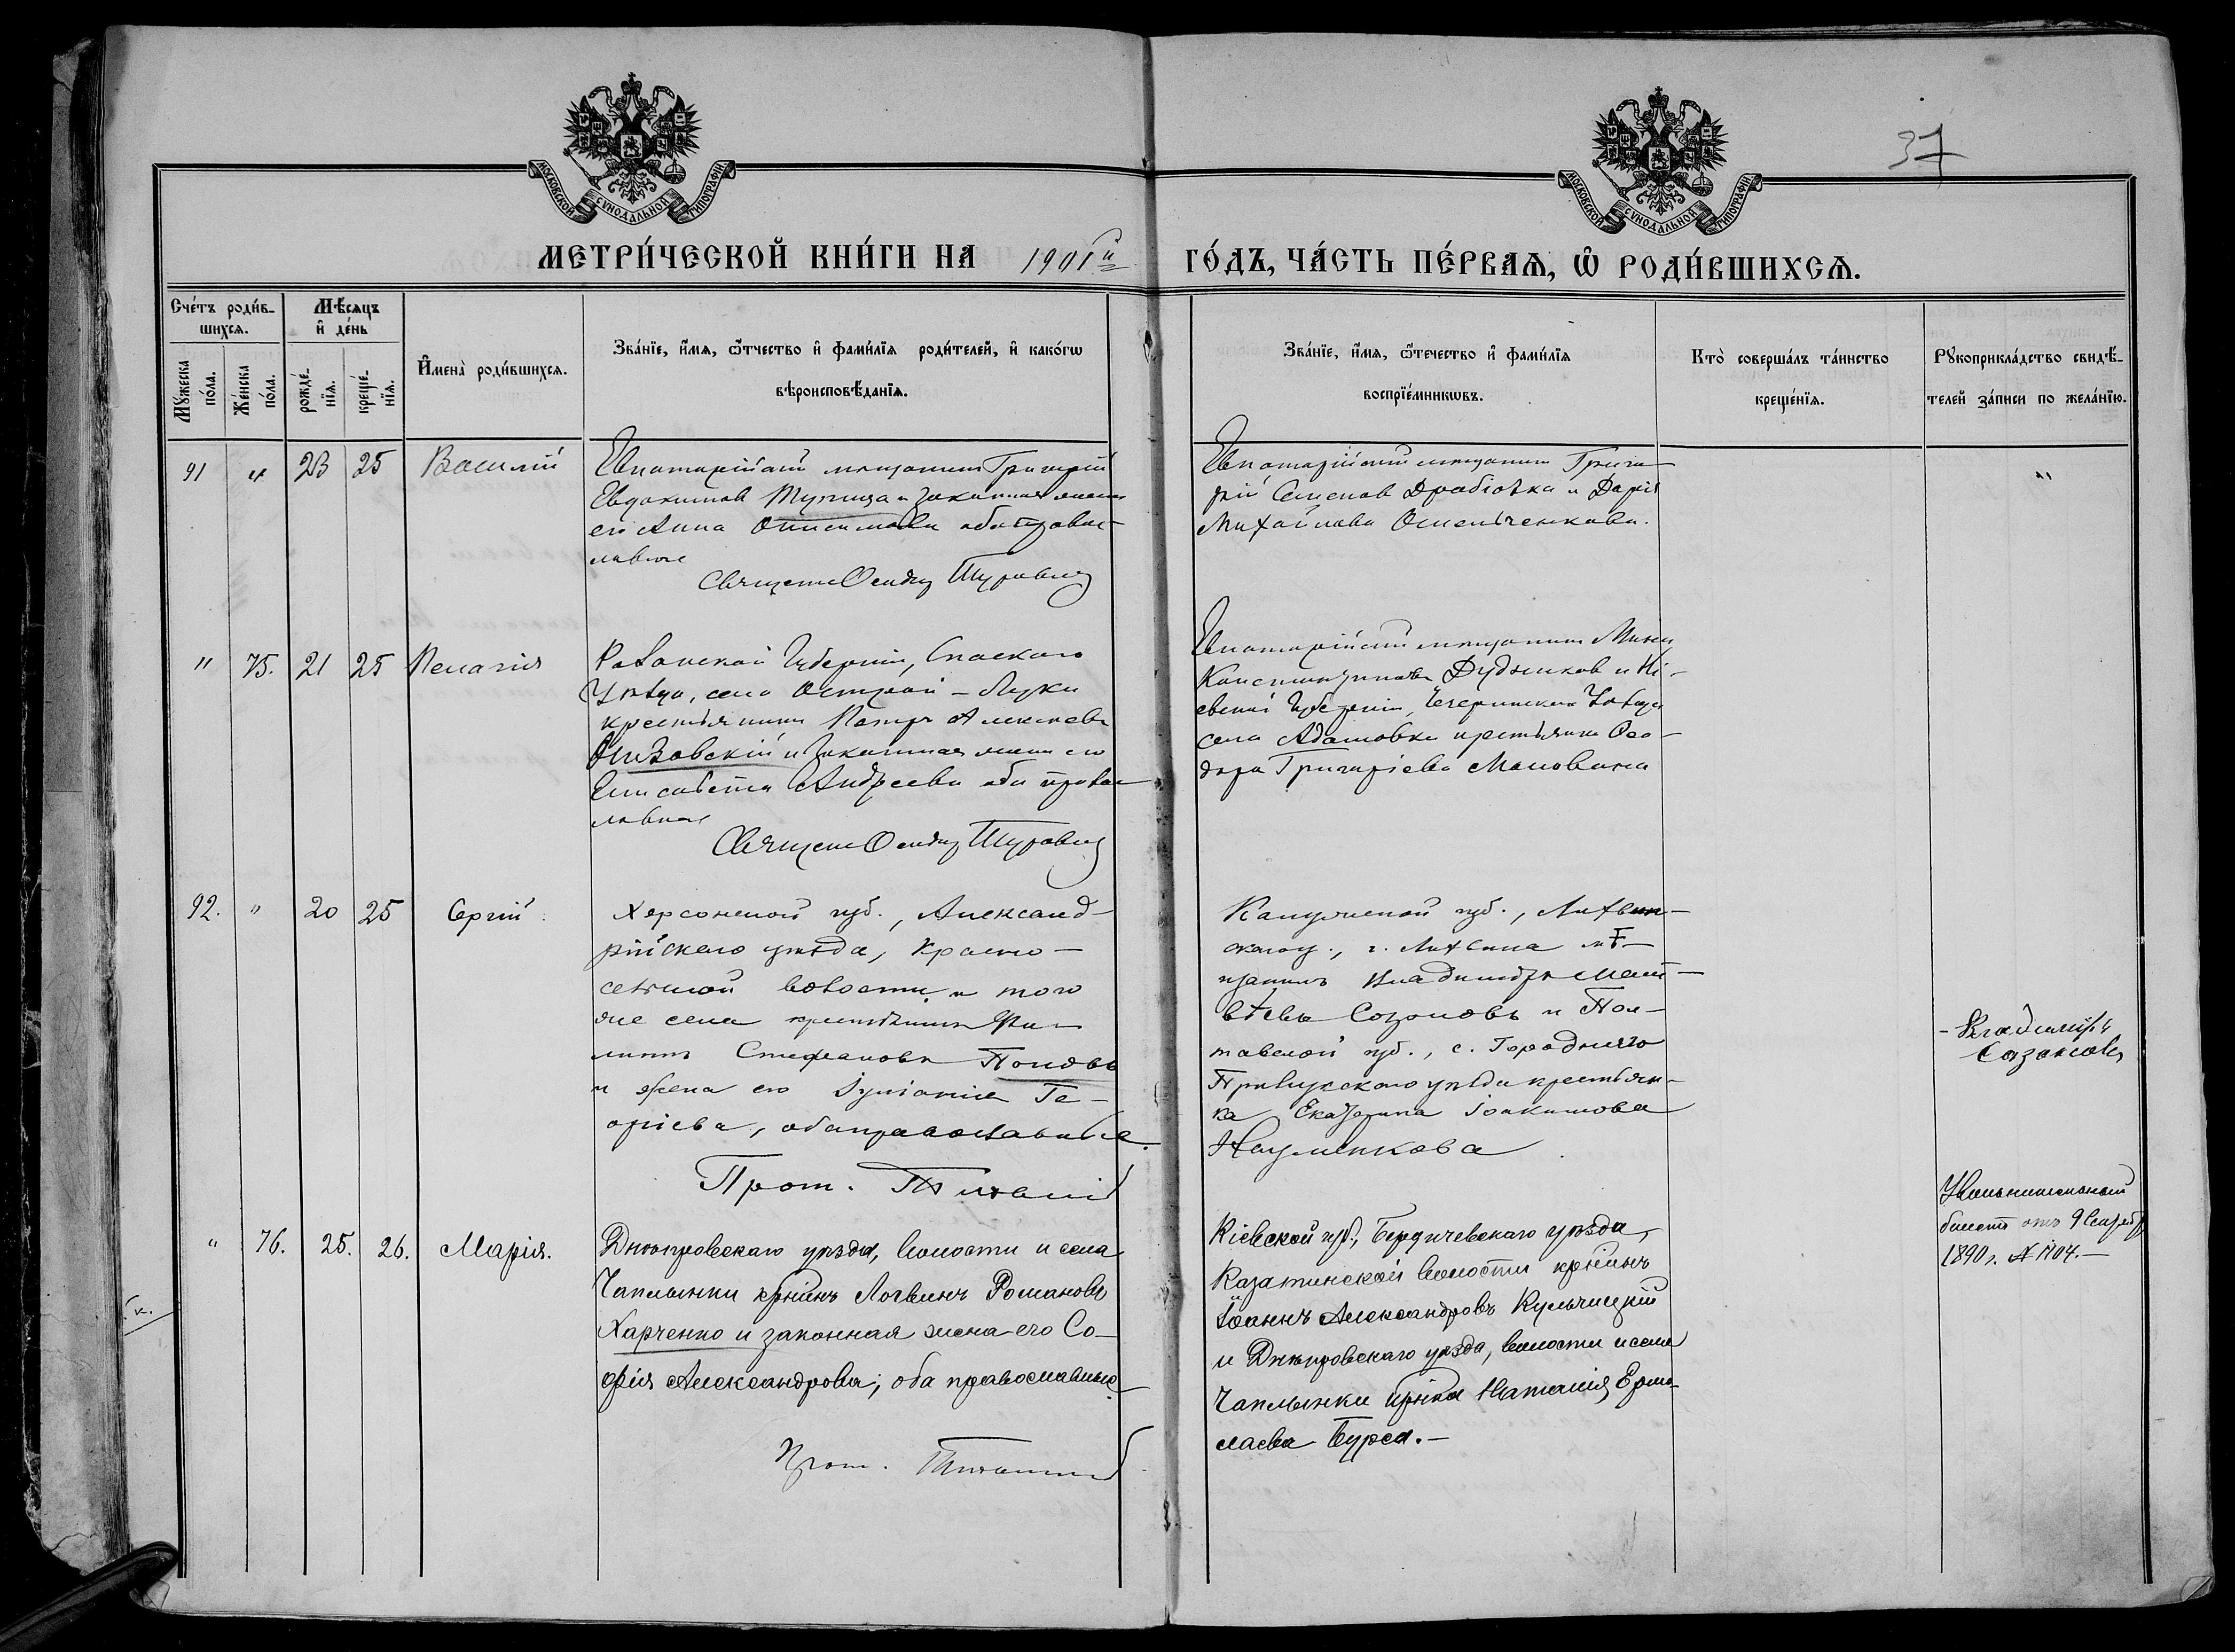 37
МОСКОВСКОЙ СѴНОДАЛЬНОЙ ТИПОГРАФІИ
МОСКОВСКОЙ СѴНОДАЛЬНОЙ ТИПОГРАФІИ
МЕТРИ́ЧЕСКОЙ КНИ́ГИ НА 1901й ГО́ДЪ, ЧА́СТЬ ПЕ́РВАѦ, Ѽ РОДИ́ВШИХСѦ.
Сче́тъ роди́в-
шихсѧ.
Мꙋ́жеска по́ла.
Же́нска по́ла.
Мѣ́сѧцъ
и҆ де́нь
рожде́-
нїѧ.
креще́-
нїѧ.
И҆мена̀ роди́вшихсѧ.
Зва́нїе, и҆́мѧ, ѻ҆́тчество и҆ фами́лїѧ роди́телей, и҆ како́гѡ
вѣроисповѣ́данїѧ.
Зва́нїе, и҆́мѧ, ѻ҆́течество и҆ фами́лїѧ
воспрїе́мникѡвъ.
Кто̀ соверша́лъ та́инство
креще́нїѧ.
Рꙋкоприкла́дство свидѣ́-
телей за́писи по жела́нїю.
91 " 23 25 Василій
Евпаторійскій мѣщанинъ Григорій
Евдокимов и законная жена
его Анна Онисимова оба правос-
лавные
Священ
Евпаторійскій мѣщанин Григо-
рій Семенов и Дарія
Михайлова Омельченкова.
"
" 75. 21 25 Пелагія
Губерніи, Спаскаго
Уѣзда, села Острой-Луки
крестьянин Петръ Алексѣевъ
и законная жена его
Елисавета Андреева оба правос
лавные
Священ
Евпаторійскій мѣщанин
Константинов Дудников и Кі-
евской Губерніи, Чегеринскаго Уѣзда
села Адамовки крестьянка Фео-
дора Григоріева
92. " 20 25 Сергій
Херсонской губ., Александ-
рійскаго уѣзда, Красно-
сельской волости и того
же села крестьянинъ Фи-
липпъ Стефановъ Поповъ
и жена его Іуліанія Ге-
оргіева, оба православные.
Прот.
Калужской губ., Лихвин-
скаго у., г. Лихвина мѣ-
щанинъ Владиміръ Мат-
вѣевъ Созоновъ и Пол-
тавской губ., с. Городняго
Прилукскаго уѣзда крестьян-
ка Екатерина Іоакимова
Науменкова
Владиміръ
Сазоновъ
" 76. 25. 26. Марія.
Днѣпровскаго уѣзда, волости и села
Чаплынки кр-нинъ Логвинъ Романовъ
Харченко и законная жена его Со-
фія Александрова; оба православные.
Прот.
Кіевской губ., Бердичевскаго уѣзда,
Казатинской волости кр-нинъ
Іоаннъ Александровъ Кульчицкій
и Днѣпровскаго уѣзда, волости и села
Чаплынки кр-нка Наталія Ермо-
лаева Бурса.-
Увольнительный
билетъ отъ 9
1890 г. №